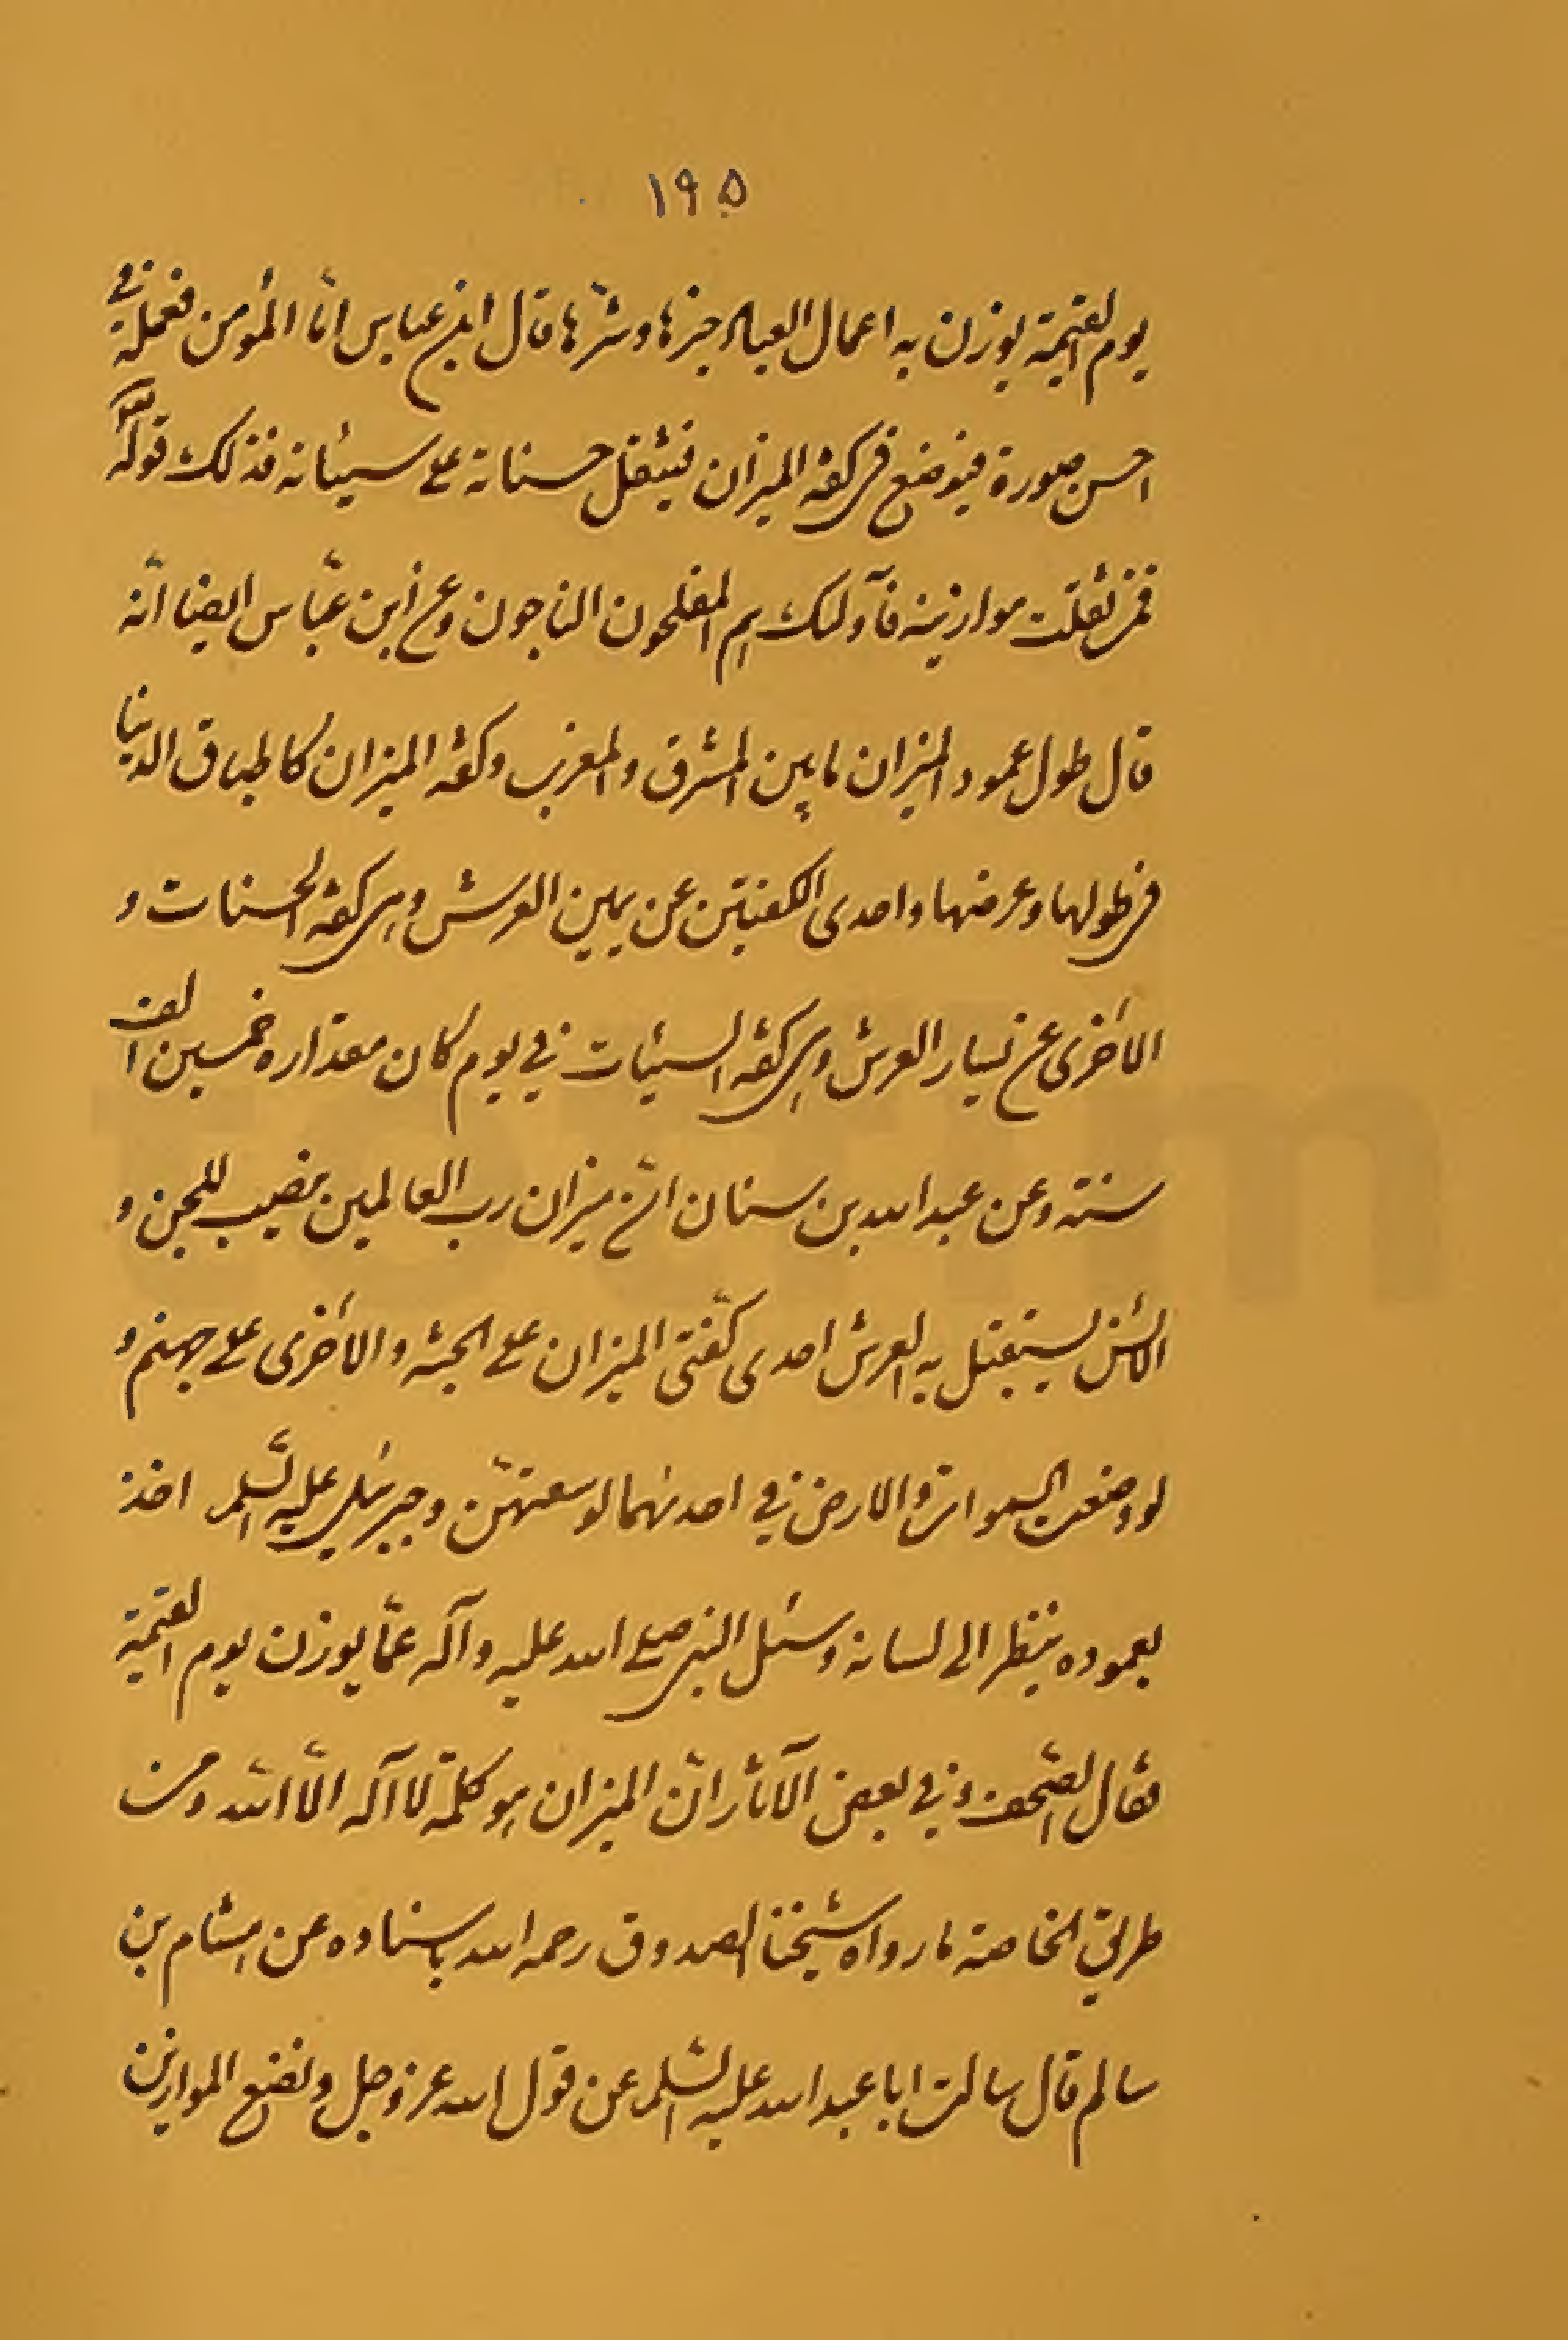 ١٩٥
يوم القيمة يوزن به اعمال العباد خيرها وشرها قال ابن عباس امّا المؤمن فعمله في
احسن صورة فيوضع في كفة الميزان فيثقل حسناته على سيئاته فذلك قوله
فمن ثقلت موازينه فآولئك هم المفلحون الناجون وعن ابن عبّاس ايضا انّه
قال طول عمود الميزان ما بين المشرق والمغرب وكفة الميزان كاطباق الدنيا
في طولها وعرضها واحدى الكفتين عن يمين العرش وهي كفة الحسنات و
الأخرى عن يسار العرش وهي كفة السيئات في يوم كان مقداره خمسين الف
سنة وعن عبد الله بن سنان انّ ميزان رب العالمين نصيب للجن و
الانس يستقبل به العرش احدى كفّتي الميزان على الجنة والأخرى على جهنم و
لو وضعت السموات والارض في احدىهما لوسعتهنّ وجبرئيل عليه السّلم اخذ
بعموده ينظر الى لسانه وسئل النبي صلى الله عليه وآله عمّا يوزن يوم القيمة
فقال الصّحف وفي بعض الآثار انّ الميزان هو كلمة لا آله الّا الله ومن
طريق الخاصة ما رواه شيخنا الصدوق رحمه الله باسناده عن هشام بن
سالم قال سالت ابا عبد الله عليه السّلم عن قول الله عز وجل ونضع الموازين